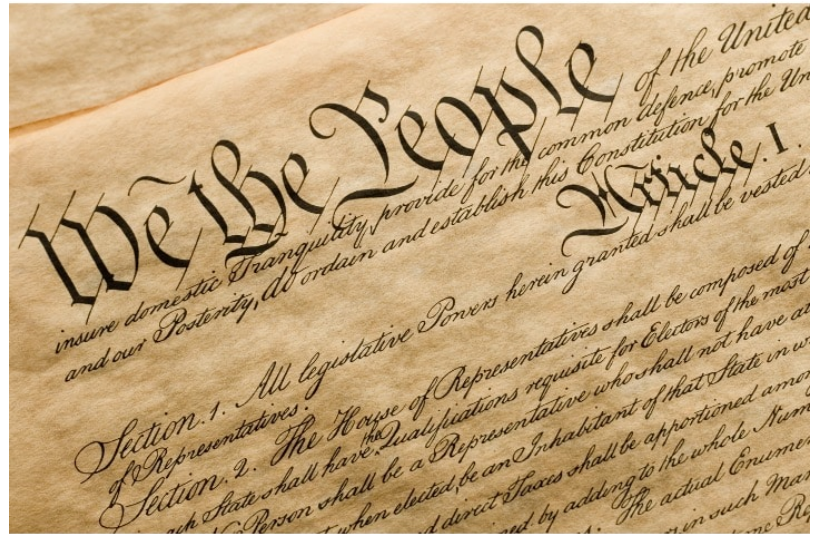 We the People of the United
insure domestic Tranquility, provide for the common defence, promote
and our Posterity, do ordain and establish this Constitution for the Un
Article. I.
Section. 1. All legislative Powers herein granted shall be vested
of Representatives.
Section. 2. The House of Representatives shall be composed of
ach State shall have the Qualifications requisite for Electors of the most
No Person shall be a Representative who shall not have at
t when elected, be an Inhabitant of that State in w
d direct Taxes shall be apportioned amon
ned by adding to the whole Num
. The actual Enumer
in such Man